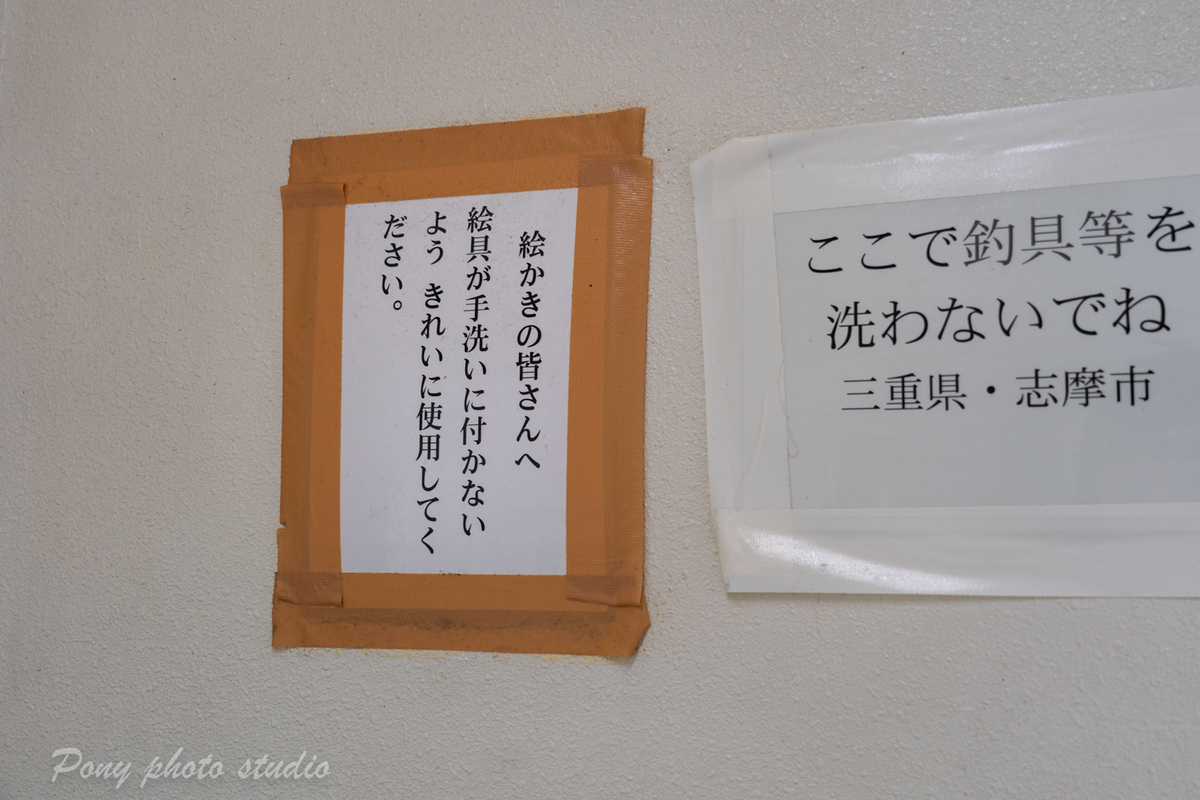 絵かきの皆さんへ
絵具が手洗いに付かない
よう きれいに使用してく
ださい。
ここで釣具等を
洗わないでね
三重県・志摩市
Pony photo studio